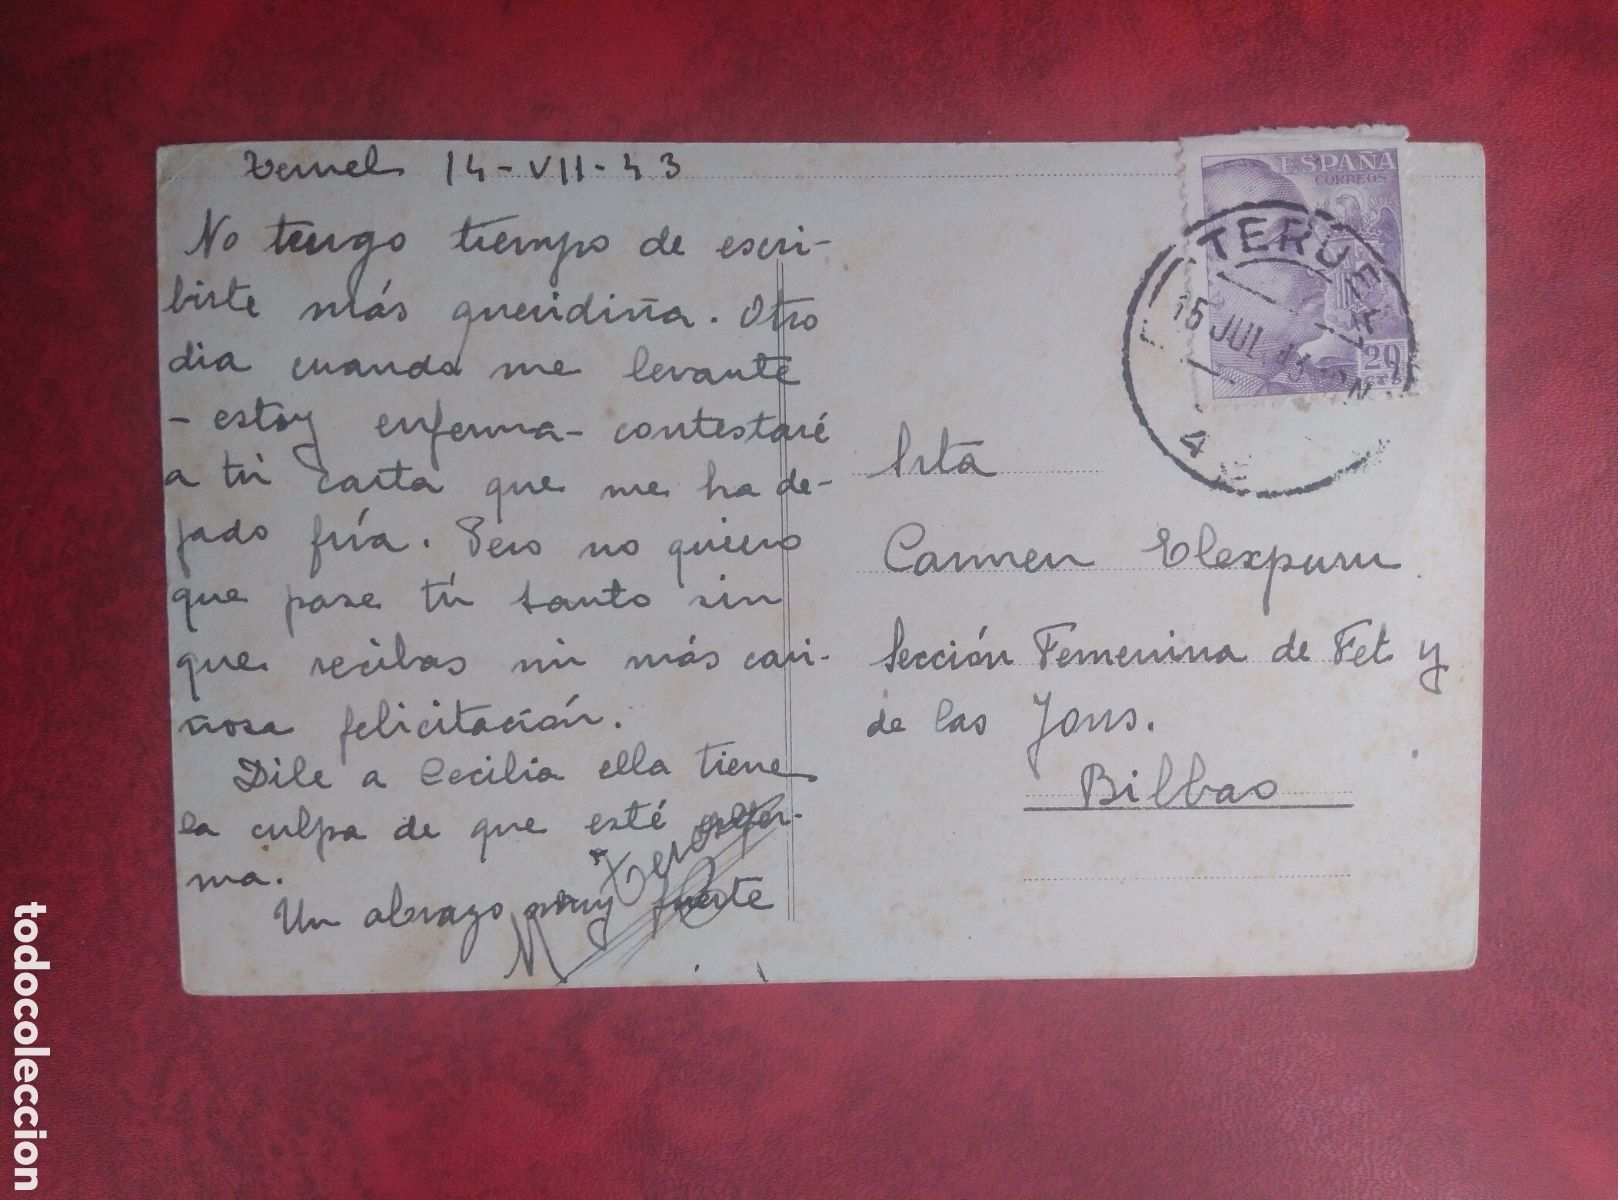 Teruel 14-VII-43
No tengo tiempo de escri-
birte más queridiña. Otro
dia cuando me levante
- estoy enferma - contestaré
a tú carta que me ha de-
jado fría. Pero no quiero
que pase tú santo sin
que recibas mi más cari-
ñosa felicitación.
Dile a Cecilia ella tiene
la culpa de que esté enfer-
ma.
Un abrazo muy fuerte
Mª Teresa
ESPAÑA
CORREOS
20
CTS
TERUEL
15 JUL. 43
4
Srta
Carmen Elexpuru
Sección Femenina de Fet y
de las Jons.
Bilbao
todocoleccion